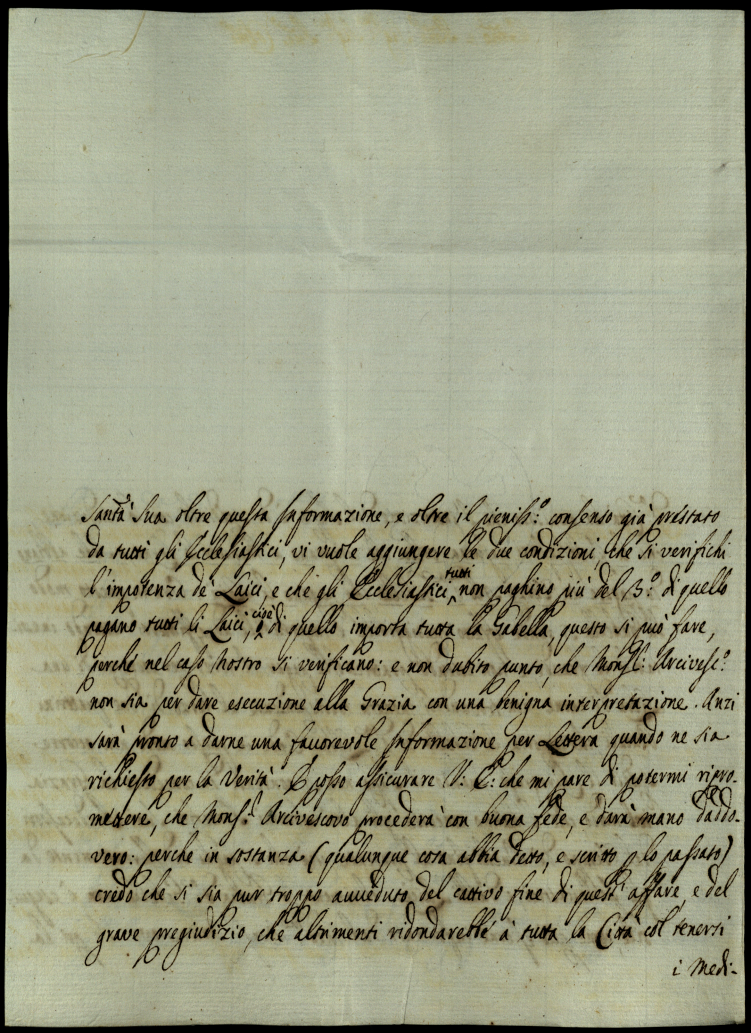 Santà Sua oltre questa Informazione, e oltre il pieniss.º consenso già prestato
da tutti gli Ecclesiastici, vi vuole aggiungere le due condizioni, che si verifichi
l'impotenza de' Laici, e che gli Ecclesiastici tutti non paghino più del 3.º di quello
pagano tutti li Laici, cioè di quello importa tutta la Gabella, questo si può fare,
perché nel caso Nostro si verificano: e non dubito punto, che Mons.r Arcivesc.º
non sia per dare esecuzione alla Grazia con una benigna interpretazione. Anzi
sarà pronto a darne una favorevole Informazione per Lettera quando ne sia
richiesto per la Verità. E posso assicurare V: E: che mi pare di potermi ripro-
mettere, che Mons.r Arcivescovo procederà con buona fede, e darà mano daddo-
vero: perche in sostanza (qualunque cosa abbia detto, e scritto p lo passato)
credo che si sia pur troppo avveduto del cattivo fine di quest'affare, e del
grave pregiudizio, che altrimenti ridondarebbe à tutta la Città col tenersi
i Medi-